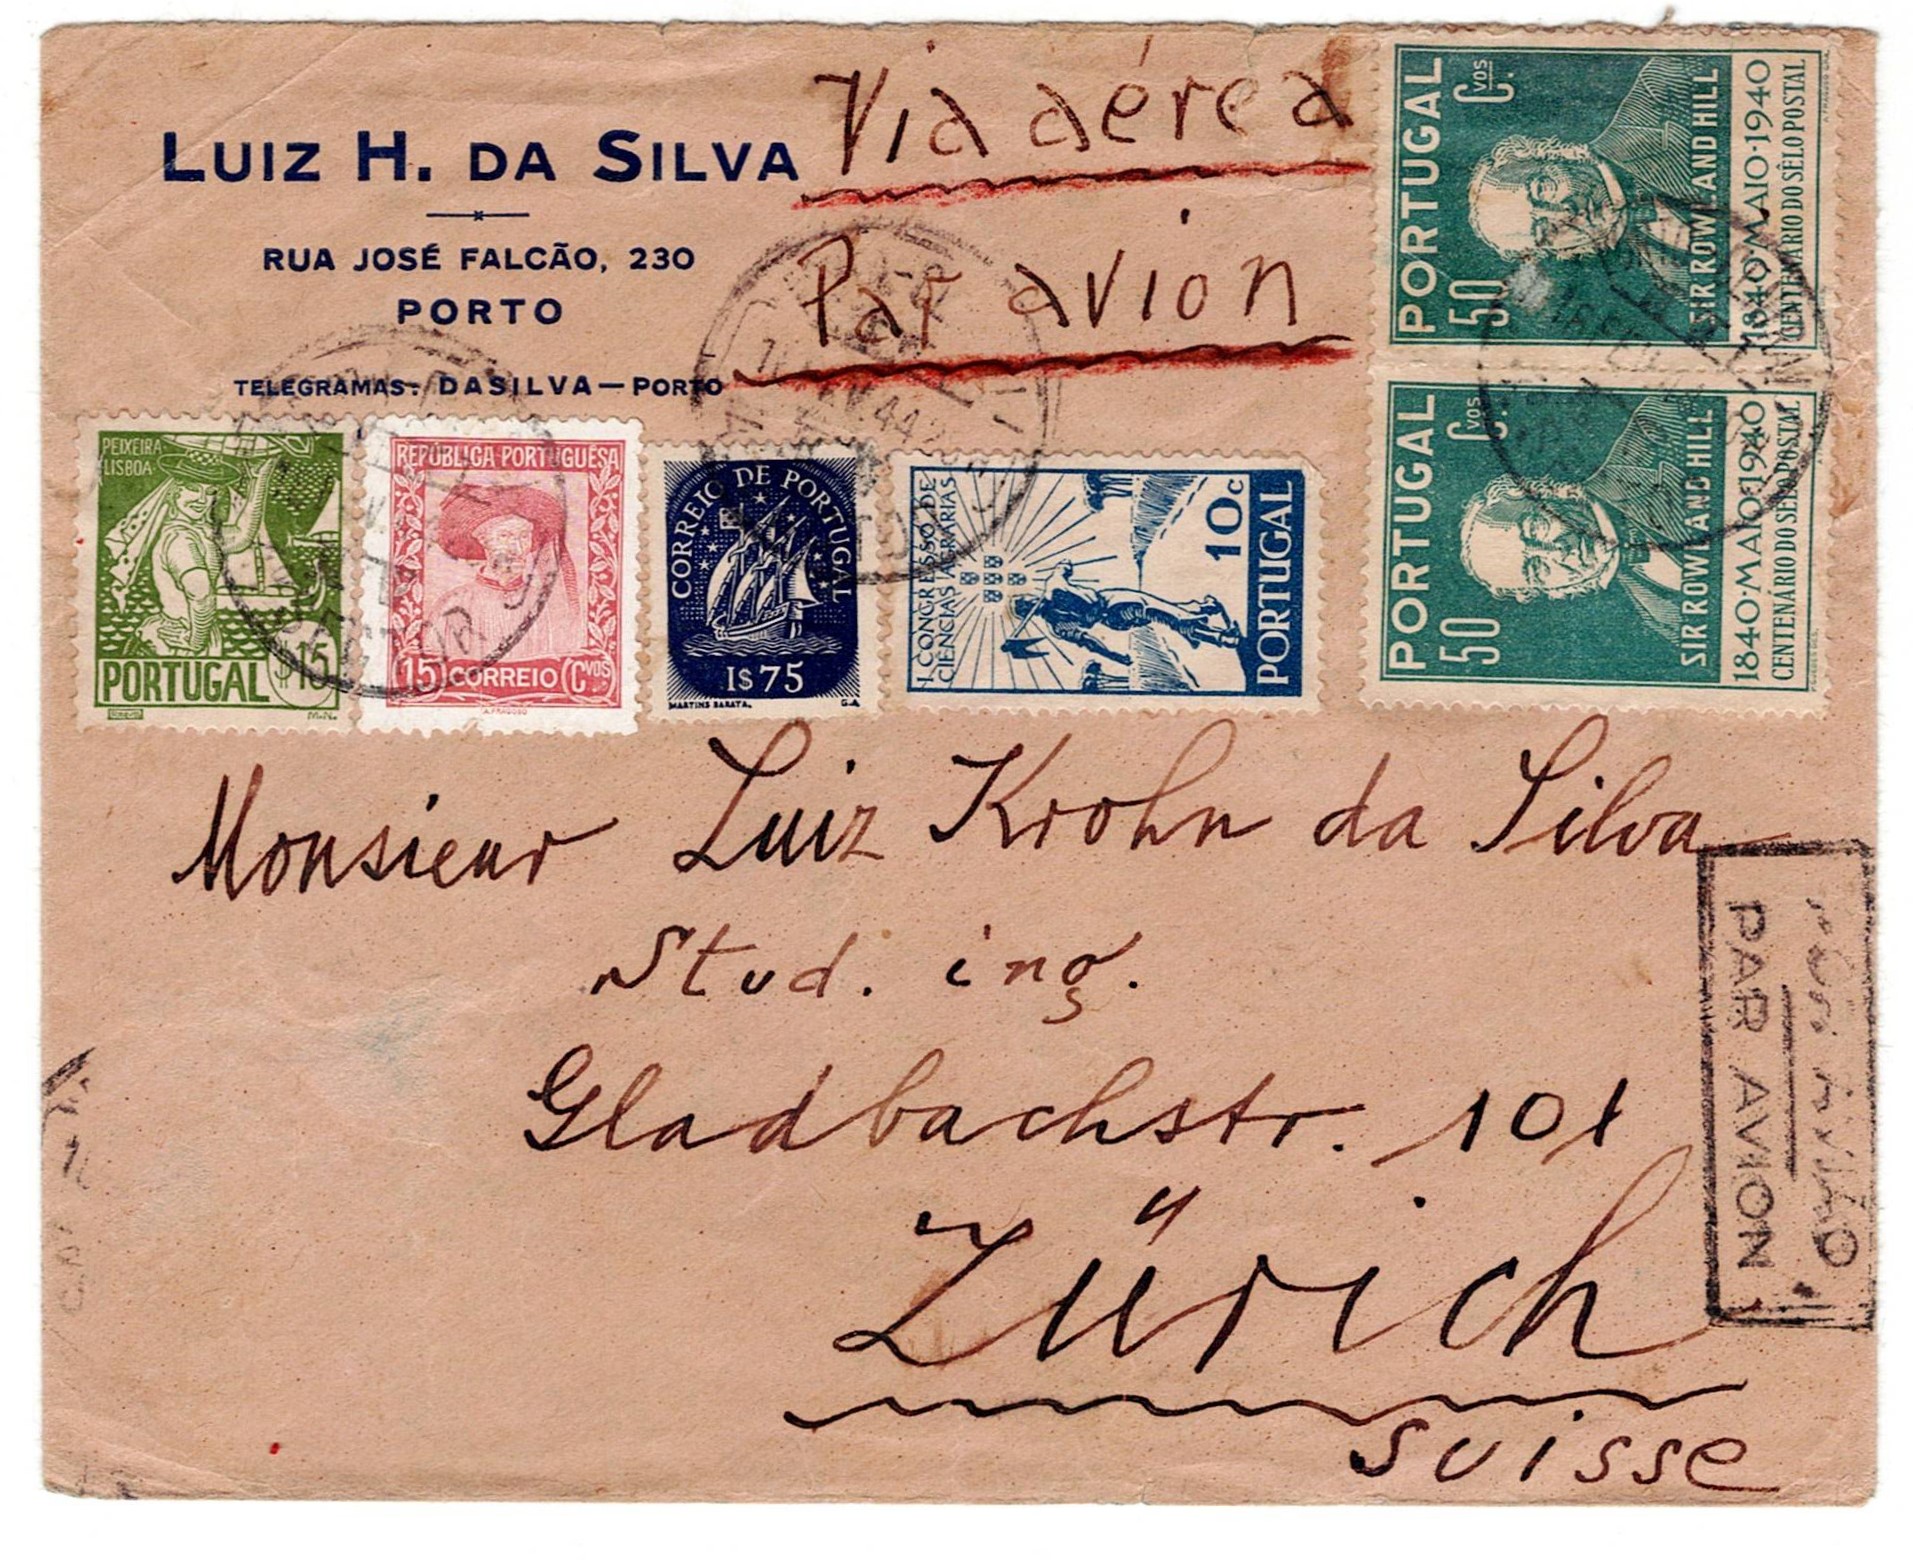 LUIZ H. DA SILVA
RUA JOSÉ FALCÃO, 230
PORTO
TELEGRAMAS: DASILVA—PORTO
Via aérea
Par avion
PORTUGAL
50 Cvos
SIR ROWLAND HILL
1840·MAIO·1940
CENTENÁRIO DO SÊLO POSTAL
PORTUGAL
50 Cvos
SIR ROWLAND HILL
1840·MAIO·1940
CENTENÁRIO DO SÊLO POSTAL
PEIXEIRA
LISBOA
PORTUGAL $15
REPÚBLICA PORTUGUESA
15 CORREIO Cvos
A. FRAGOSO
CORREIO DE PORTUGAL
1$75
MARTINS BARATA. G.A
I CONGRESSO DE
CIÊNCIAS AGRÁRIAS
10c
PORTUGAL
44
Monsieur Luiz Krohn da Silva
Stud. ing.
Gladbachstr. 101
Zürich
Suisse
PAR AVION